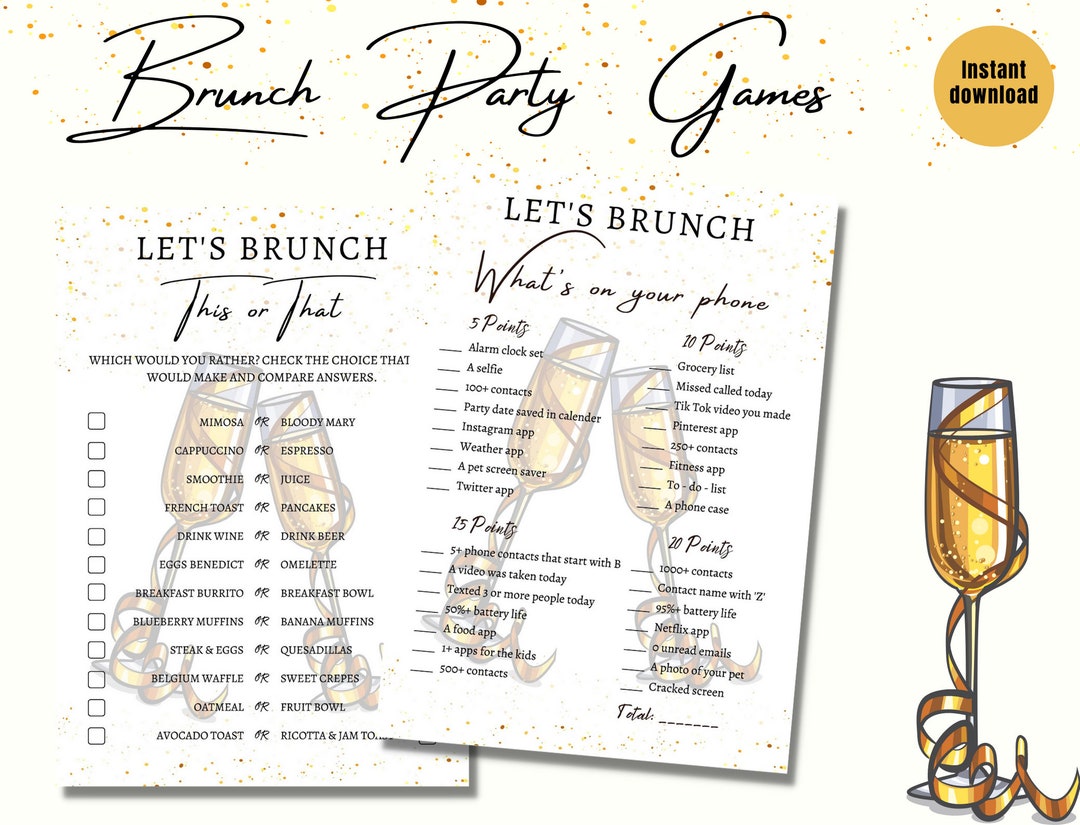 Brunch Party Games
Instant
download
LET'S BRUNCH
This or That
WHICH WOULD YOU RATHER? CHECK THE CHOICE THAT
WOULD MAKE AND COMPARE ANSWERS.
MIMOSA OR BLOODY MARY
CAPPUCCINO OR ESPRESSO
SMOOTHIE OR JUICE
FRENCH TOAST OR PANCAKES
DRINK WINE OR DRINK BEER
EGGS BENEDICT OR OMELETTE
BREAKFAST BURRITO OR BREAKFAST BOWL
BLUEBERRY MUFFINS OR BANANA MUFFINS
STEAK & EGGS OR QUESADILLAS
BELGIUM WAFFLE OR SWEET CREPES
OATMEAL OR FRUIT BOWL
AVOCADO TOAST OR RICOTTA & JAM
LET'S BRUNCH
What's on your phone
5 Points
___ Alarm clock set
___ A selfie
___ 100+ contacts
___ Party date saved in calender
___ Instagram app
___ Weather app
___ A pet screen saver
___ Twitter app
10 Points
___ Grocery list
___ Missed called today
___ Tik Tok video you made
___ Pinterest app
___ 250+ contacts
___ Fitness app
___ To - do - list
___ A phone case
15 Points
___ 5+ phone contacts that start with B
___ A video was taken today
___ Texted 3 or more people today
___ 50%+ battery life
___ A food app
___ 1+ apps for the kids
___ 500+ contacts
20 Points
___ 1000+ contacts
___ Contact name with 'Z'
___ 95%+ battery life
___ Netflix app
___ 0 unread emails
___ A photo of your pet
___ Cracked screen
Total: _______